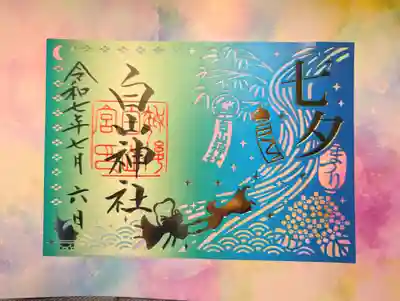 七夕
まつり
白山神社
令和七年七月六日